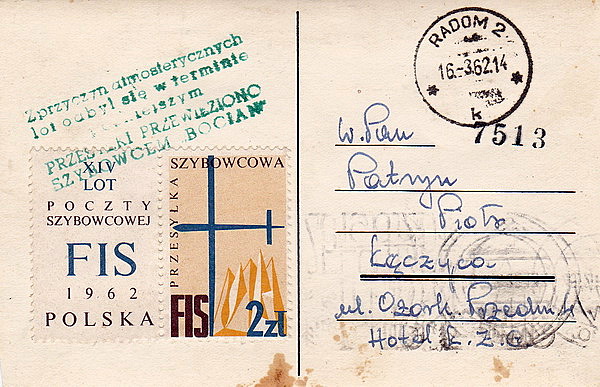 Z przyczyn atmosferycznych
lot odbył się w terminie
PRZESYŁKI PRZEWIEZIONO
SZYBOWCEM "BOCIAN"
XIV
LOT
POCZTY
SZYBOWCOWEJ
FIS
1962
POLSKA
PRZESYŁKA
SZYBOWCOWA
FIS
2zł
RADOM 2
16.-3.62.14
k
7513
W. Pan
Patryn
Piotr
Łęczyca
ul. Ozork. Przedm. 4
Hotel Ł.Z.G.